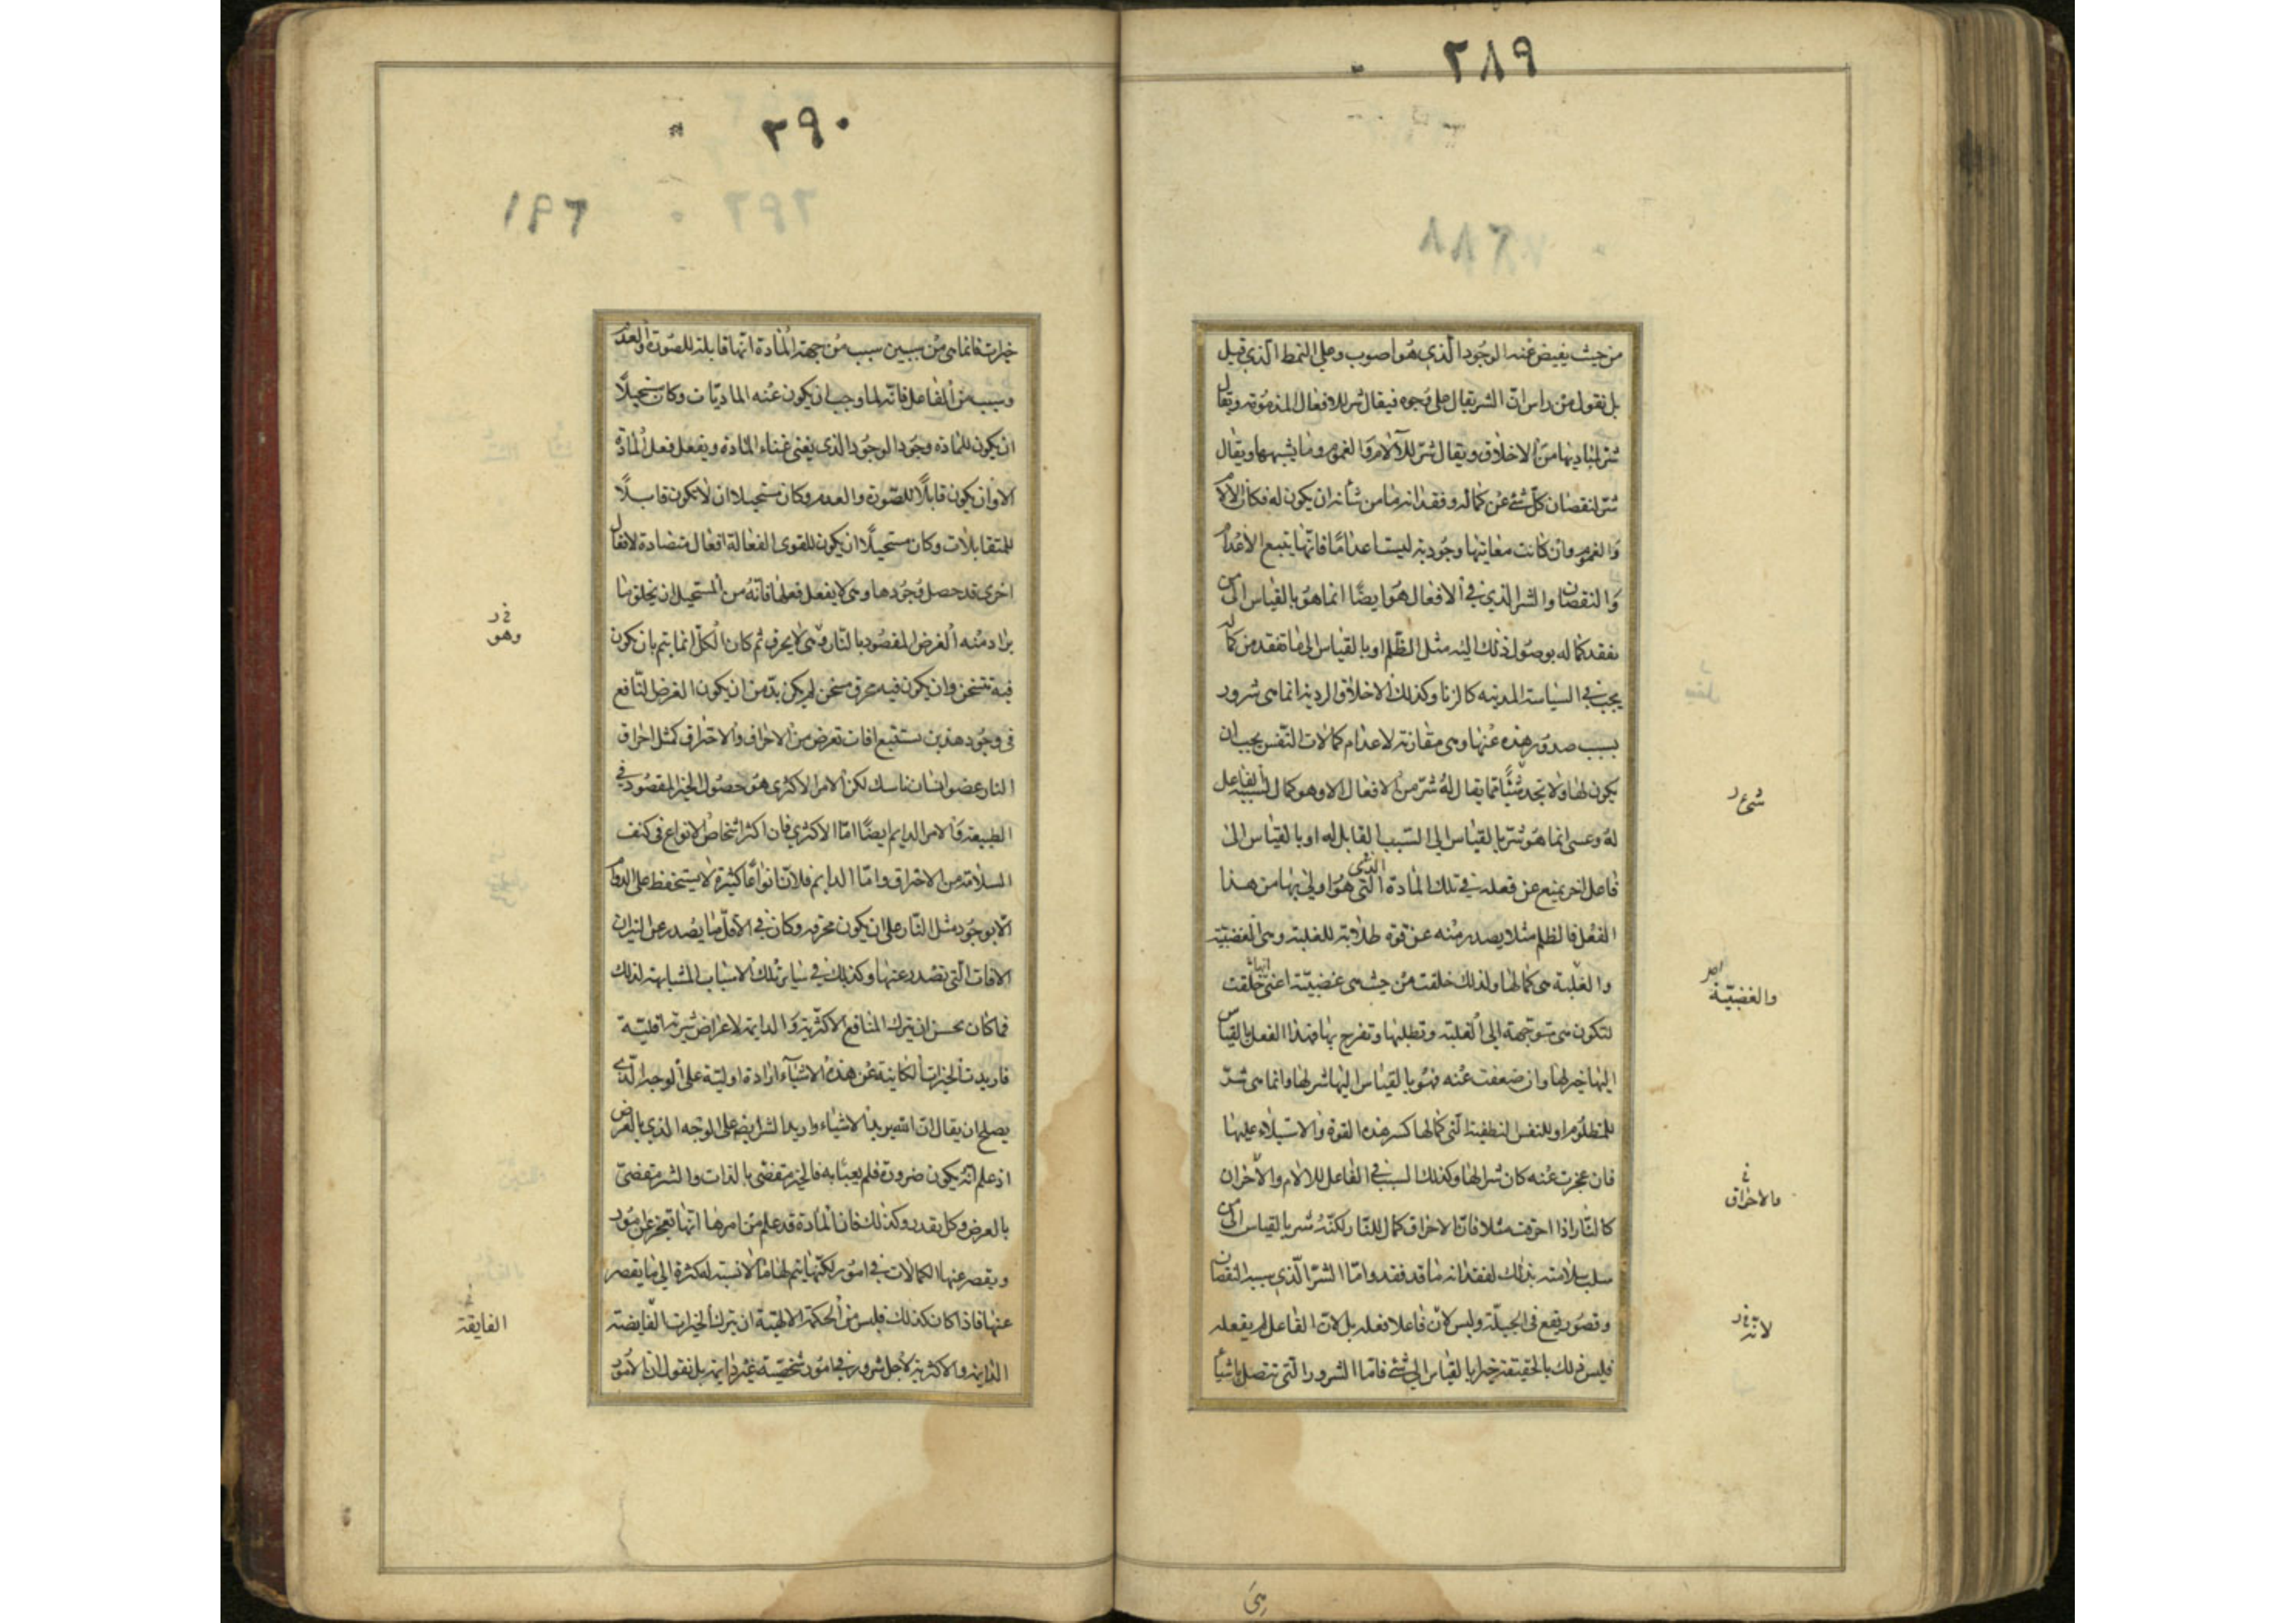 ٢٨٩
٢٨٨
من حيث يفيض عنه الوجود الذي هو اصوب وعلى النمط الذي قيل
بل نقول من راس ان الشر يقال على وجوه فيقال شر للافعال المذمومة ويقال
شر لمباديها من الاخلاق ويقال شر للآلام والغموم وما يشبهها ويقال
شر لنقصان كل شئ عن كماله وفقدانه ما من شأنه ان يكون له فكان الآلام
والغموم وان كانت معانيها وجودية ليست اعداما فانها يتبع الاعدام
والنقصان والشر الذي في الافعال هو ايضا انما هو بالقياس الى من
يفقد كماله بوصول ذلك اليه مثل الظلم او بالقياس الى ما تفقد من كمال
يجب في السياسة المدنية كالزنا وكذلك الاخلاق الردية انما هي شرور
بسبب صدور هذه عنها وهي مقارنة لاعدام كمالات النفس يجب ان
يكون لها ولا تجد شيًا مما يقال له شر من الافعال الا وهو كمال لسببه الفاعل
له وعسى انما هو شر بالقياس الى السبب القابل له او بالقياس الى
فاعل اخر يمنع عن فعله في تلك المادة الذي التي هو اولى بها من هذا
الفعل فالظلم مثلا يصدر منه عن قوة طلابة للغلبة وهي الغضبية
والغلبة هي كمالها ولذلك خلقت من حيث هي غضبية اعني انها خلقت
لتكون هي متوجهة الى الغلبة وتطلبها وتفرح بها فهذا الفعل بالقياس
اليها خير لها وان ضعفت عنه فهو بالقياس اليها شر لها وانما هي شر
للمظلوم او للنفس لنطقية التي كمالها كسر هذه القوة والاستيلاء عليها
فان عجزت عنه كان شرا لها وكذلك السبب في الفاعل للآلام والاحزان
كالنار اذا احرقت مثلا فان الاحراق كمال للنار لكنه شر بالقياس الى من
سلب سلامته بذلك لفقدانه ما قد فقد واما الشر الذي سببه النقصان
وقصور يقع في الجبلة وليس لان فاعلا فعله بل لان الفاعل لم يفعله
فليس ذلك بالحقيقة خيرا بالقياس الى شئ فاما الشرور التي تتصل باشياء
شئ ر
امر
والغضبية
والاحراق
لانه
٢٩٠
خيرات فانما هي من سببين سبب من جهة المادة انها قابلة للصورة والعدم
وسبب من الفاعل فانه لما وجب ان يكون عنه الماديات وكان مستحيلًا
ان يكون للمادة وجود الوجود الذي يغني غناء المادة ويفعل فعل المادة
الا وان يكون قابلًا للصورة والعدم وكان مستحيلا ان لا تكون قابلًا
للمتقابلات وكان مستحيلًا ان يكون للقوى الفعالة افعال متضادة لافعال
اخرى قد حصل وجودها وهي لا يفعل فعلها فانه من المستحيل ان يخلق ما
يراد منه الغرض المقصود بالنار وهي لا يحرق ثم كان الكل انما يتم بان يكون
فيه متسخن وان يكون فيه محرق مسخن لم يكن بد من ان يكون الغرض النافع
في وجود هذين يستتبع افات تعرض من الاحراق والاحتراق كمثل احراق
النار عضو انسان ناسك لكن الامر الاكثرى هو حصول الخير المقصود في
الطبيعة والامر الدايم ايضا اما الاكثري فان اكثر اشخاص الانواع في كنف
السلامة من الاحتراق واما الدايم فلان انواعًا كثيرة لا يستحفظ على الدوام
الا بوجود مثل النار على ان يكون محرقه وكان في الاقل ما يصدر عن النيران
الافات التي تصدر عنها وكذلك في سائر تلك الاسباب المشابهة لذلك
فما كان يحسن ان يترك المنافع الاكثرية والدايمة لاعراض شرية اقلية
فاريدت الخيرات الكاينة عن هذه الاشياء ارادة اولية على الوجه الذي
يصلح ان يقال ان الله يريد الاشياء واريد الشر ايضا على الوجه الذي بالعرض
اذ علم انه يكون ضرورة فلم يعبأ به فالخير مقتضى بالذات والشر مقتضى
بالعرض وكل بقدر وكذلك فان المادة قد علم من امرها انها تعجز عن امور
ويقصر عنها الكمالات في امور لكنها يتم لها ما لا نسبة له كثرة الى ما يقصر
عنها فاذا كان كذلك فليس من الحكمة الالهية ان يترك الخيرات الفايضة
الدايمة والاكثرية لاجل شرور في امور شخصية غير دايمة بل نقول ان الامور
وهو
الفايقة